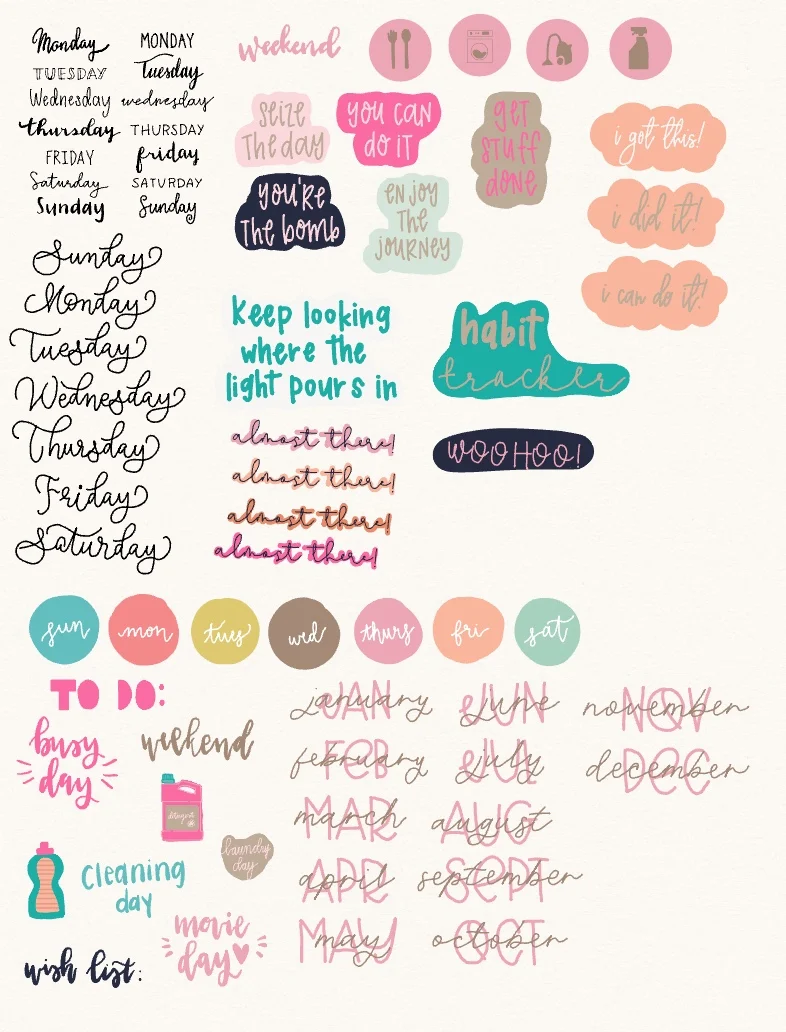 Monday
MONDAY
TUESDAY
Tuesday
Wednesday
wednesday
thursday
THURSDAY
FRIDAY
friday
Saturday
SATURDAY
Sunday
Sunday
weekend
SEIZE
THE DAY
YOU CAN
DO IT
GET
STUFF
DONE
YOU'RE
THE BOMB
ENJOY
THE
JOURNEY
i got this!
i did it!
i can do it!
Sunday
Monday
Tuesday
Wednesday
Thursday
Friday
Saturday
Keep looking
where the
light pours in
habit
tracker
almost there!
almost there!
almost there!
almost there!
WOOHOO!
sun
mon
tues
wed
thurs
fri
sat
TO DO:
busy
day
weekend
laundry
day
Cleaning
day
movie
day
wish list:
JAN january
FEB february
MAR march
APR april
MAY may
JUN june
JUL july
AUG august
SEPT september
OCT october
NOV november
DEC december